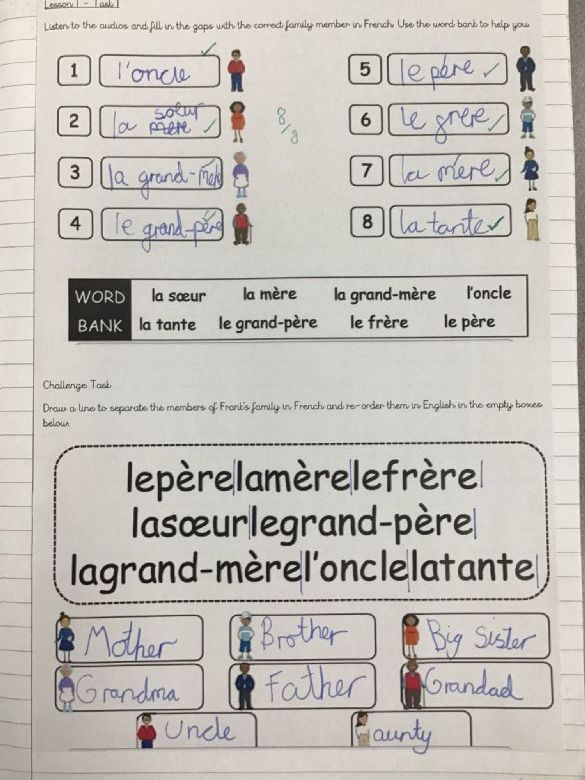 Lesson 1 - Task 1
Listen to the audios and fill in the gaps with the correct family member in French. Use the word bank to help you
1 l'oncle
5 le père
2 la mère sœur
6 le grère
8/8
3 la grand-mère
7 la mère
4 le grand-père
8 la tante
WORD BANK
la sœur la mère la grand-mère l'oncle
la tante le grand-père le frère le père
Challenge Task
Draw a line to separate the members of Frank's family in French and re-order them in English in the empty boxes
below.
lepère|lamère|lefrère|
lasœur|legrand-père|
lagrand-mère|l'oncle|latante|
Mother Brother Big Sister
Grandma Father Grandad
Uncle aunty